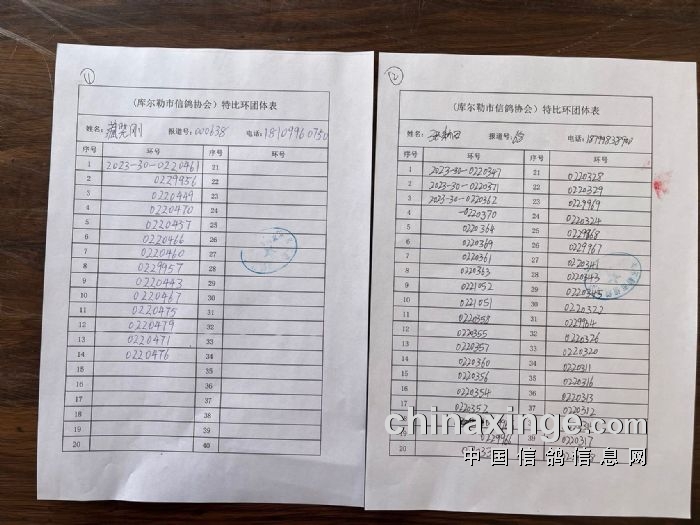 ①
(库尔勒市信鸽协会) 特比环团体表
姓名: 报道号: 000638 电话: 18109960750
序号 环号 序号 环号
1 2023-30-0220461 21
2 0229956 22
3 0220449 23
4 0220470 24
5 0220457 25
6 0220466 26
7 0220460 27
8 0229957 28
9 0220443 29
10 0220467 30
11 0220475 31
12 0220479 32
13 0220471 33
14 0220476 34
15 35
16 36
17 37
18 38
19 39
20 40
②
(库尔勒市信鸽协会) 特比环团体表
姓名: 报道号: 电话:
序号 环号 序号 环号
1 2023-30-0220347 21 0220328
2 2023-30-0220371 22 0220329
3 2023-30-0220362 23 0229969
4 -0220370 24 0220324
5 0220364 25 0229968
6 0220369 26 0229967
7 0220361 27 0220341
8 0220363 28 0220343
9 0221052 29 0220345
10 0221051 30 0220322
11 0220358 31 0229964
12 0220355 32 0220326
13 0220357 33 0220320
14 0220360 34 0220311
15 0220356 35 0220316
16 0220354 36 0220313
17 0220352 37 0220312
18
19 39 0220317
20
chinaxinge.com
中国信鸽信息网